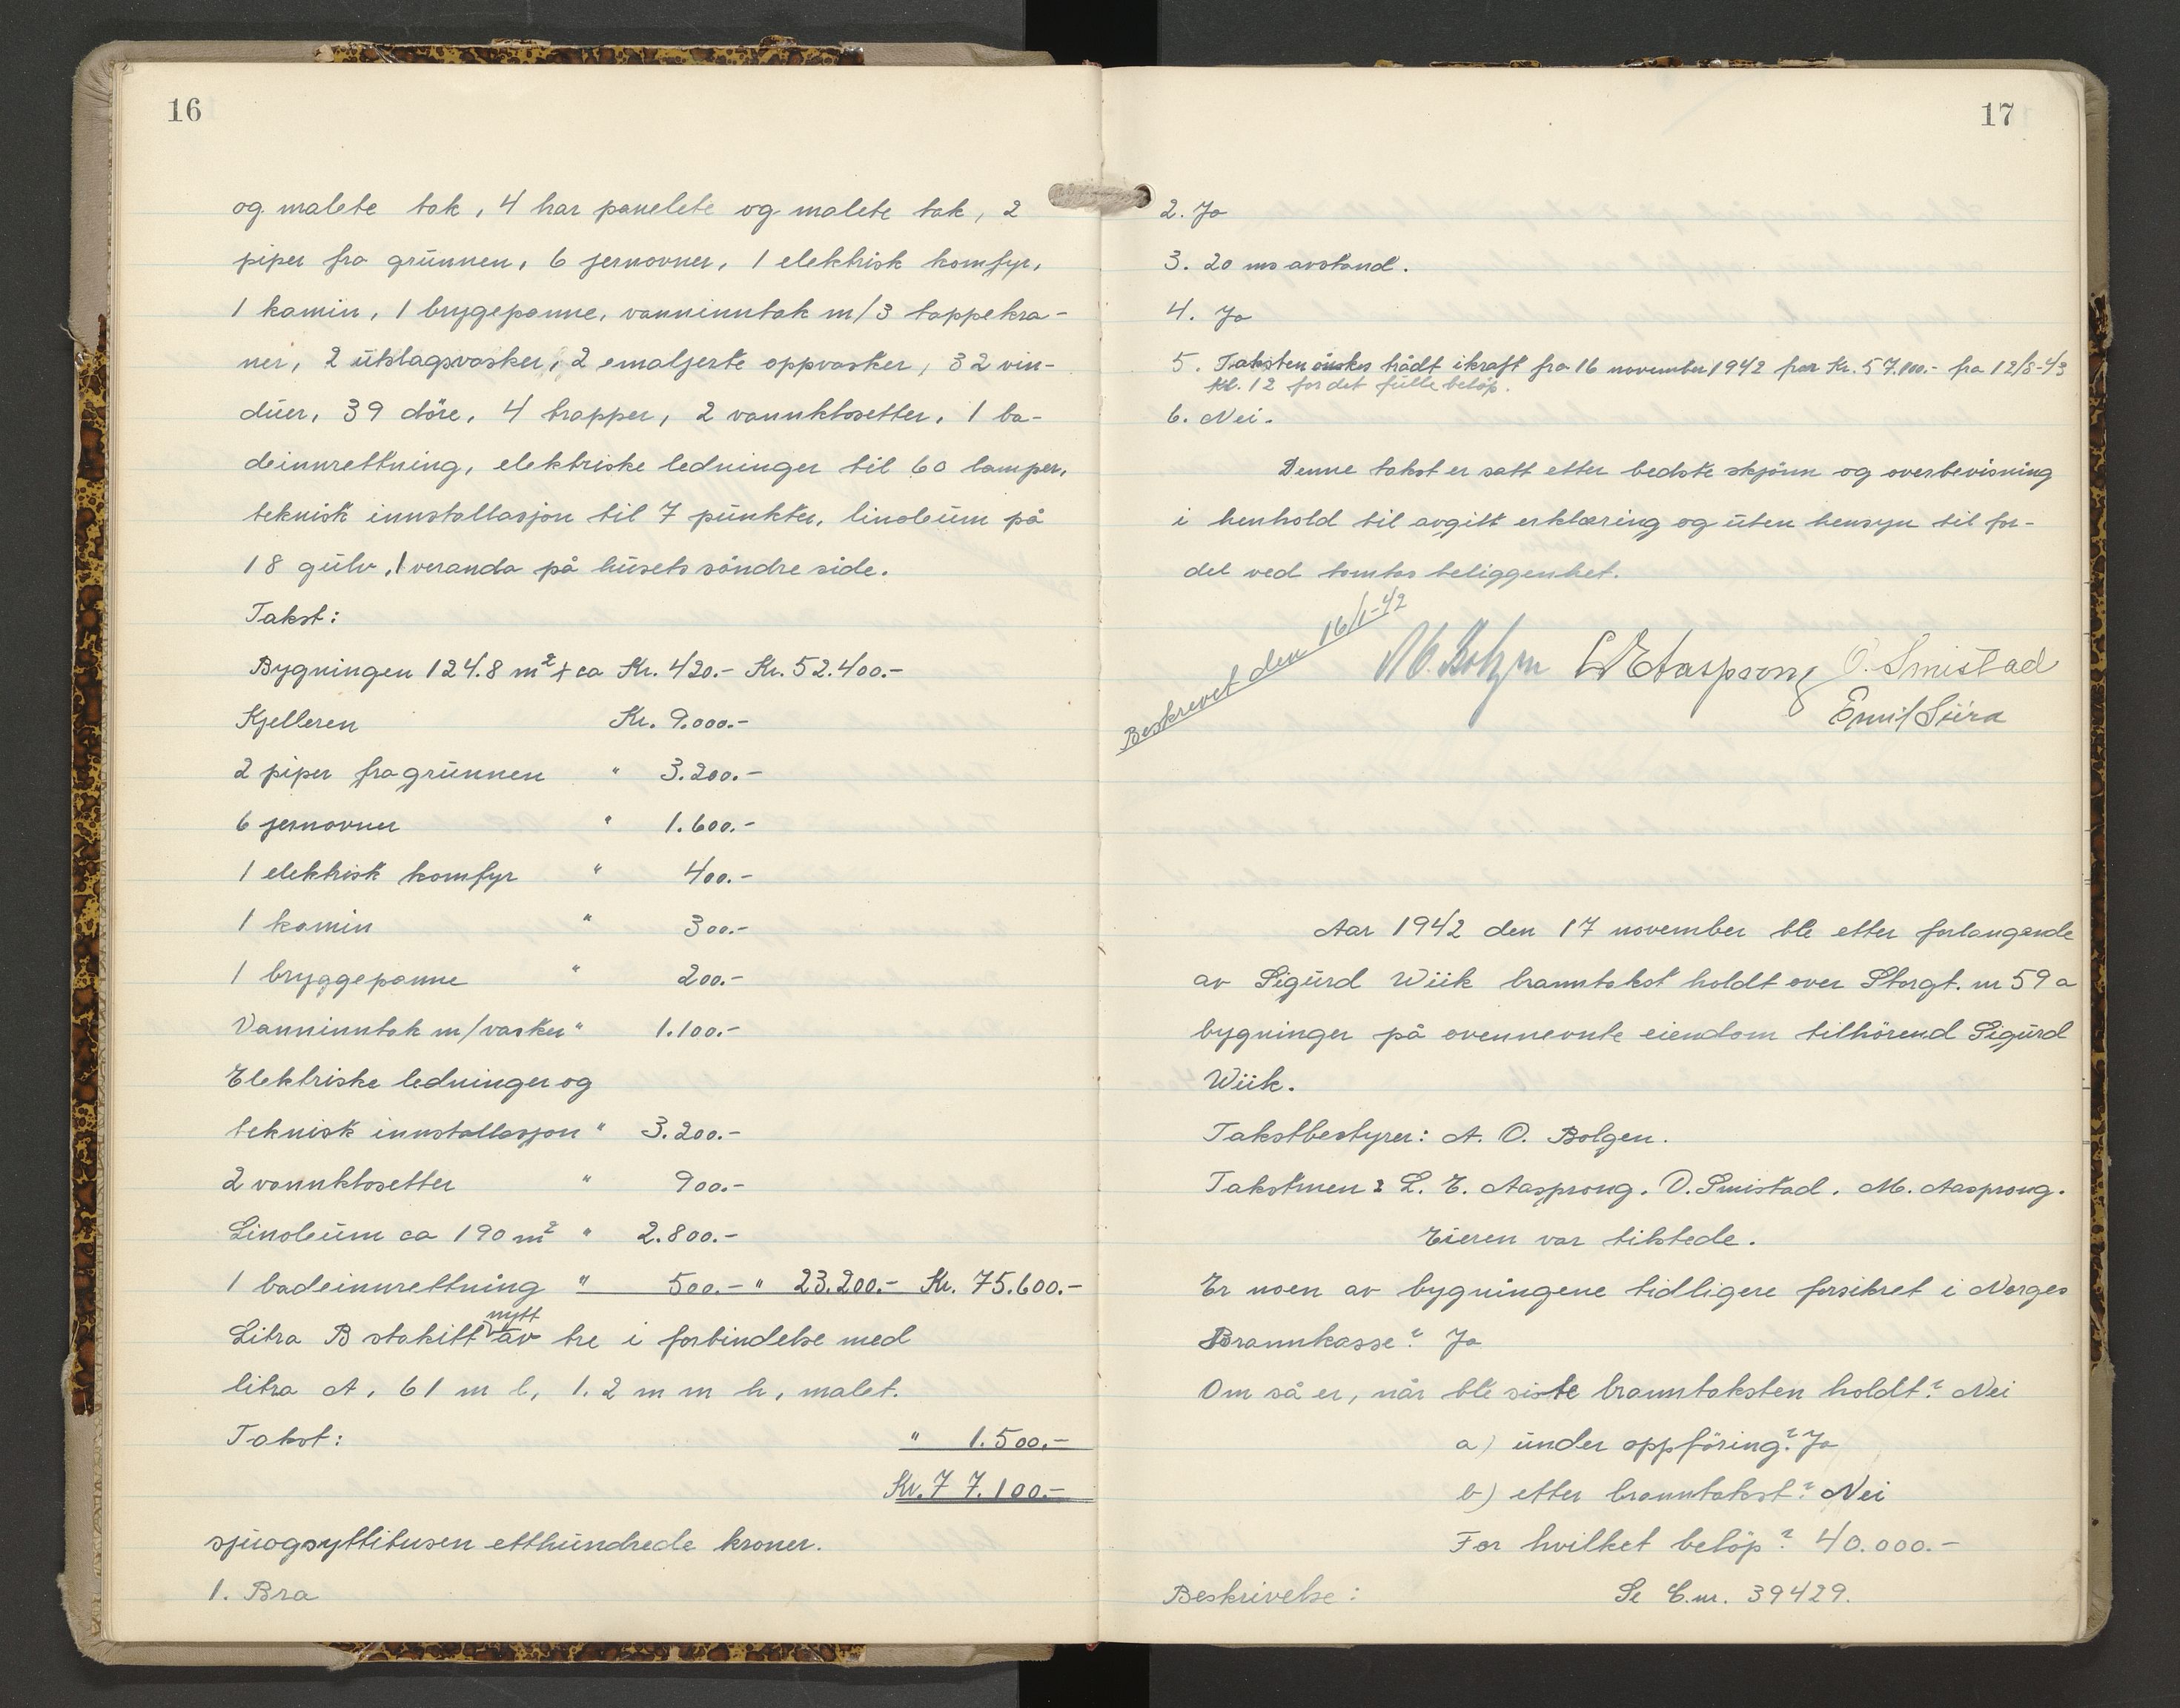 16
og malete tak, 4 har panelete og malete tak, 2
piper fra grunnen, 6 jernovner, 1 elektrisk komfyr,
1 kamin, 1 brygepanne, vanninntak m/3 tappekra-
ner, 2 utslagsvasker, 2 emaljerte oppvasker, 32 vin-
duer, 39 döre, 4 trapper, 2 vannklosetter, 1 ba-
deinnrettning, elektriske ledninger til 60 lamper,
teknisk innstallasjon til 7 punkter, linoleum på
18 gulv, 1 veranda på husets söndre side.
Takst:
Bygningen 124.8 m² x ca Kr. 420.- Kr. 52.400.-
Kjelleren Kr. 9.000.-
2 piper fra grunnen " 3.200.-
6 jernovner " 1.600.-
1 elektrisk komfyr " 400.-
1 kamin " 300.-
1 bryggepanne " 200.-
Vanninntak m/vasker " 1.100.-
Elektriske ledninger og
teknisk innstallasjon " 3.200.-
2 vannklosetter " 900.-
Linoleum ca 190 m² " 2.800.-
1 badeinnrettning " 500.- " 23.200.- Kr. 75.600.-
Litra B stakitt nytt av tre i forbindelse med
litra A, 61 m l, 1.2 m m h, malet.
Takst: " 1.500.-
Kr. 77.100.-
sjuogsyttitusen etthundrede kroner.
1. Bra
17
2. Ja
3. 20 ms avstand.
4. Ja
5. Taksten önskes trådt ikraft fra 16 november 1942 for Kr. 57.100.- fra 12/8-43
kl. 12 for det fulle belöp.
6. Nei.
Denne takst er satt etter bedste skjönn og overbevisning
i henhold til avgitt erklæring og uten hensyn til for-
del ved tomtas beliggenhet.
Beskrevet den 16/1-42
L E Aasprong O. Smistad
Emil
Aar 1942 den 17 november ble etter forlangende
av Sigurd Wiik branntakst holdt over Storgt. nr 59 a
bygninger på ovennevnte eiendom tilhörend Sigurd
Wiik.
Takstbestyrer: A. O. Bolgen.
Takstmen: L. E. Aasprong. O. Smistad. M. Aasprong.
Eieren var tilstede.
Er noen av bygningene tidligere forsikret i Norges
Brannkasse? Ja
Om så er, når ble siste branntaksten holdt? Nei
a) under oppföring? Ja
b) etter branntakst? Nei
For hvilket belöp? 40.000.-
Beskrivelse: Se E.nr. 39429.